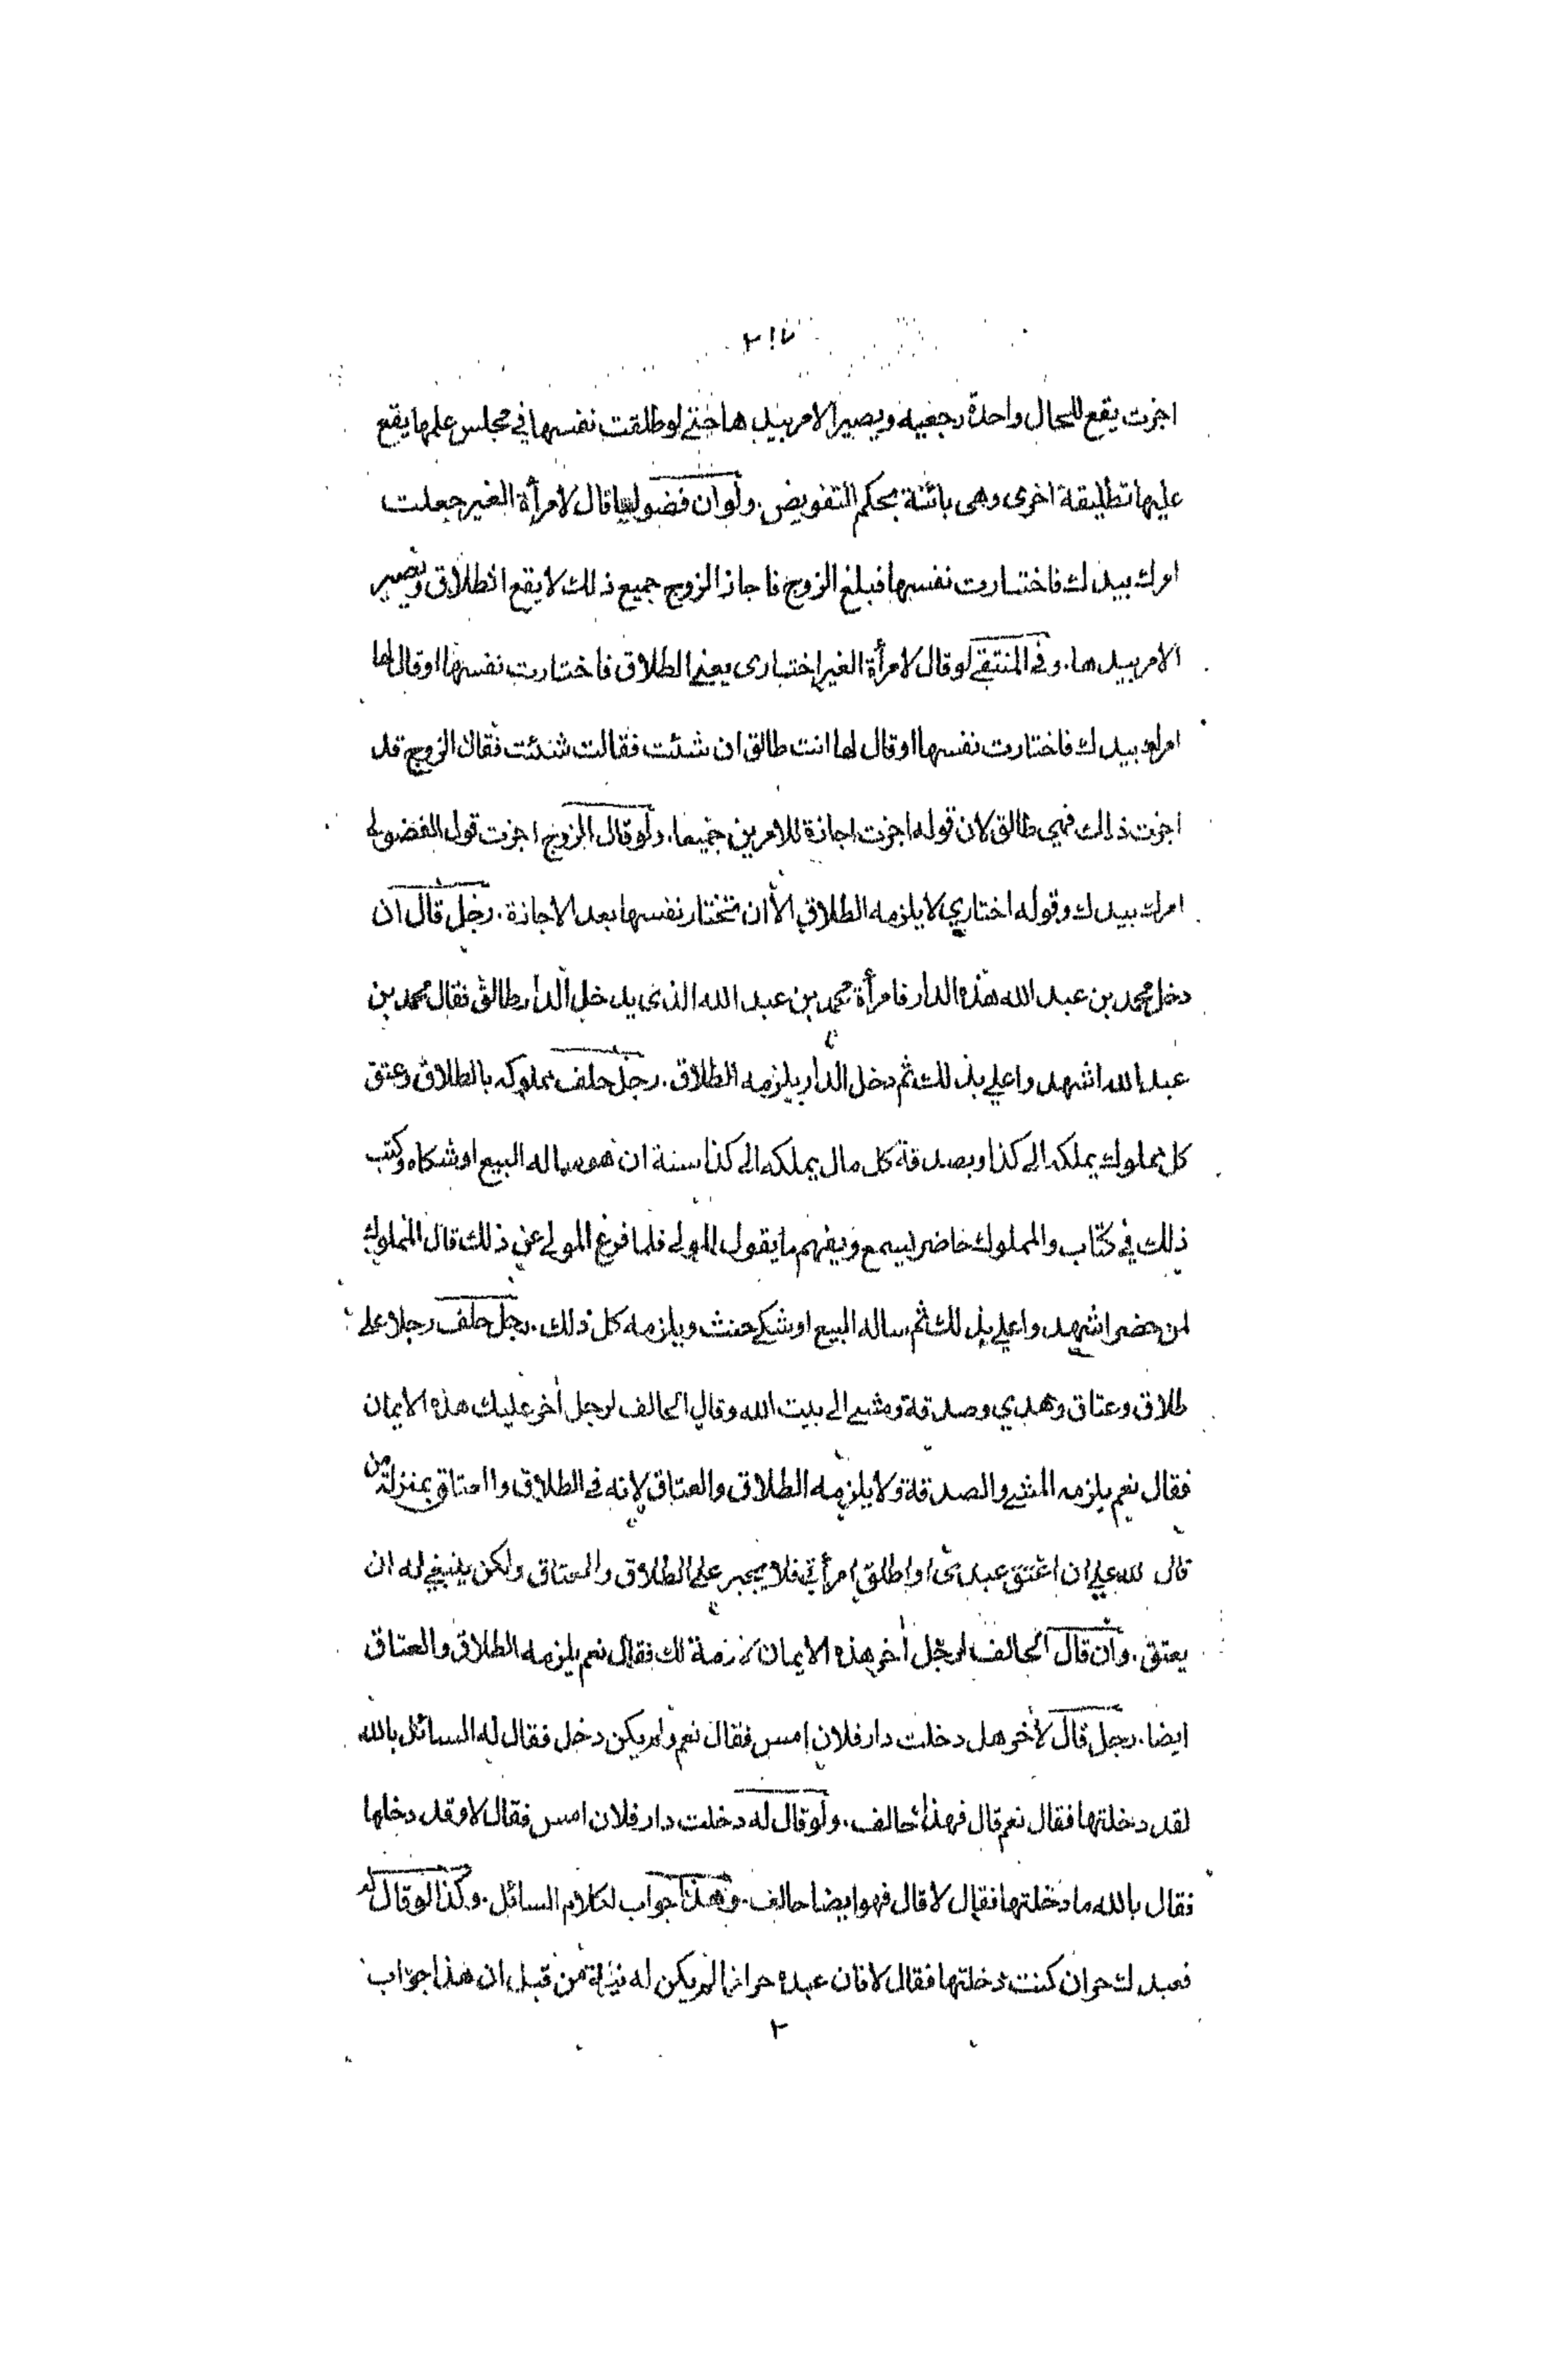 ٢١٧
اجزت يقع للحال واحدة رجعية ويصير الامر بيدها حتى لو طلقت نفسها في مجلس علمها يقع
عليها تطليقة اخرى وهى بائنة بحكم التفويض . ولو ان فضوليا قال لامرأة الغير جعلت
امرك بيدك فاختارت نفسها فبلغ الزوج فاجاز الزوج جميع ذلك لا يقع الطلاق ويصير
الامر بيدها . وفى المنتقى لو قال لامرأة الغير اختارى يعنى الطلاق فاختارت نفسها او قال لها
امرك بيدك فاختارت نفسها او قال لها انت طالق ان شئت فقالت شئت فقال الزوج قد
اجزت ذلك فهي طالق لان قوله اجزت اجازة للامرين جميعا . ولو قال الزوج اجزت قول الفضولى
امرك بيدك وقوله اختاري لا يلزمه الطلاق الا ان تختار نفسها بعد الاجازة . رجل قال ان
دخل محمد بن عبد الله هذه الدار فامرأة محمد بن عبد الله الذى يدخل الدار طالق فقال محمد بن
عبد الله اشهدوا علي بذلك ثم دخل الدار يلزمه الطلاق . رجل حلف مملوكه بالطلاق وعتق
كل مملوك يملكه الى كذا وبصدقة كل مال يملكه الى كذا سنة ان هو ساله البيع او شكاه وكتب
ذلك في كتاب والمملوك حاضر يسمع ويفهم ما يقول المولى فلما فرغ المولى عن ذلك قال المملوك
لمن حضر اشهدوا علي بذلك ثم ساله البيع او شكى حنث ويلزمه كل ذلك . رجل حلف رجلا على
طلاق وعتاق وهدي وصدقة ومشى الى بيت الله وقال الحالف لرجل أخر عليك هذه الايمان
فقال نعم يلزمه المشي والصدقة ولا يلزمه الطلاق والعتاق لانه فى الطلاق والعتاق بمنزلة من
قال لله علي ان اعتق عبدى او اطلق امرأتي فلا يجبر على الطلاق والعتاق ولكن ينبغي له ان
يعتق . وان قال الحالف لرجل أخر هذه الايمان لازمة لك فقال نعم يلزمه الطلاق والعتاق
ايضا . رجل قال لأخر هل دخلت دار فلان امس فقال نعم ولم يكن دخل فقال له السائل بالله
لقد دخلتها فقال نعم قال فهذا حالف . ولو قال له دخلت دار فلان امس فقال لا وقد دخلها
فقال بالله ما دخلتها فقال لا قال فهو ايضا حالف . وهذا جواب لكلام السائل . وكذا لو قال له
فعبدك حر ان كنت دخلتها فقال لا فان عبده حر اذا لم يكن له نية من قبل ان هذا جواب
٢